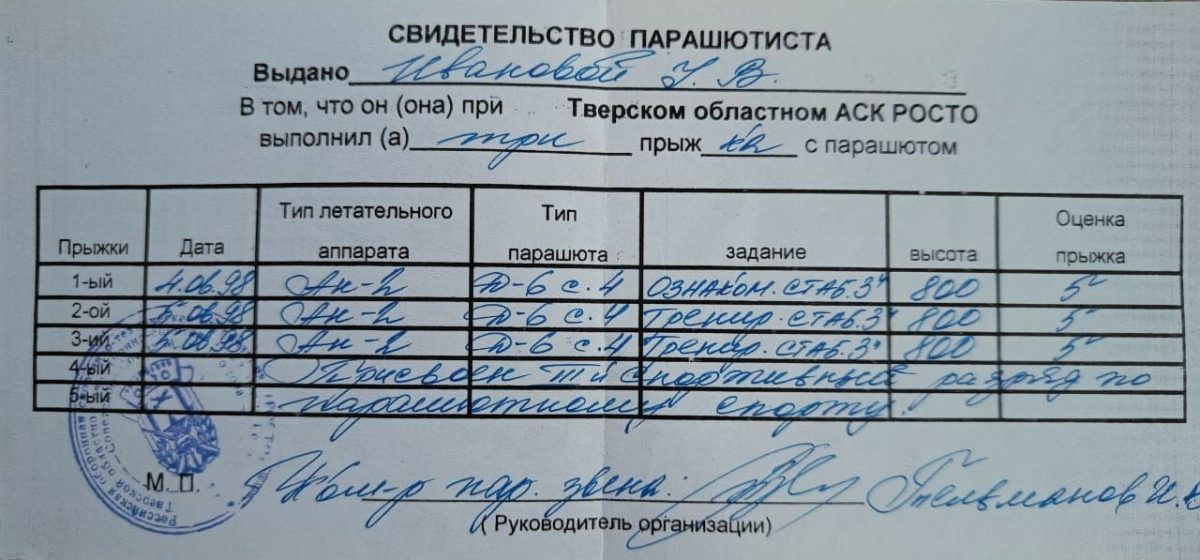 СВИДЕТЕЛЬСТВО ПАРАШЮТИСТА
Выдано Ивановой У. В.
В том, что он (она) при Тверском областном АСК РОСТО
выполнил (а) три прыж ка с парашютом
Прыжки Дата Тип летательного аппарата Тип парашюта задание высота Оценка прыжка
1-ый 4.06.98 Ан-2 Д-6 с.4 ознаком. стаб.3" 800 5
2-ой 5.06.98 Ан-2 Д-6 с.4 Тренир. стаб.3" 800 5
3-ий 5.06.98 Ан-2 Д-6 с.4 Тренир. стаб.3" 800 5
4-ый Присвоен III й спортивный разряд по
5-ый парашютному спорту.
М. П. Ком-р пар. звена: Тельманов И.
( Руководитель организации)
Российская оборонная
Тверской областной